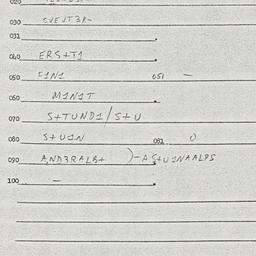 030 EVENT3R-
031
040 ERS+T1
050 F1N1 051 —
060 M1N1T
070 S+TUND1/S+U
080 S+U1N 081 0
090 AND3RALB+ )-AS+U1NAALPS
100 —